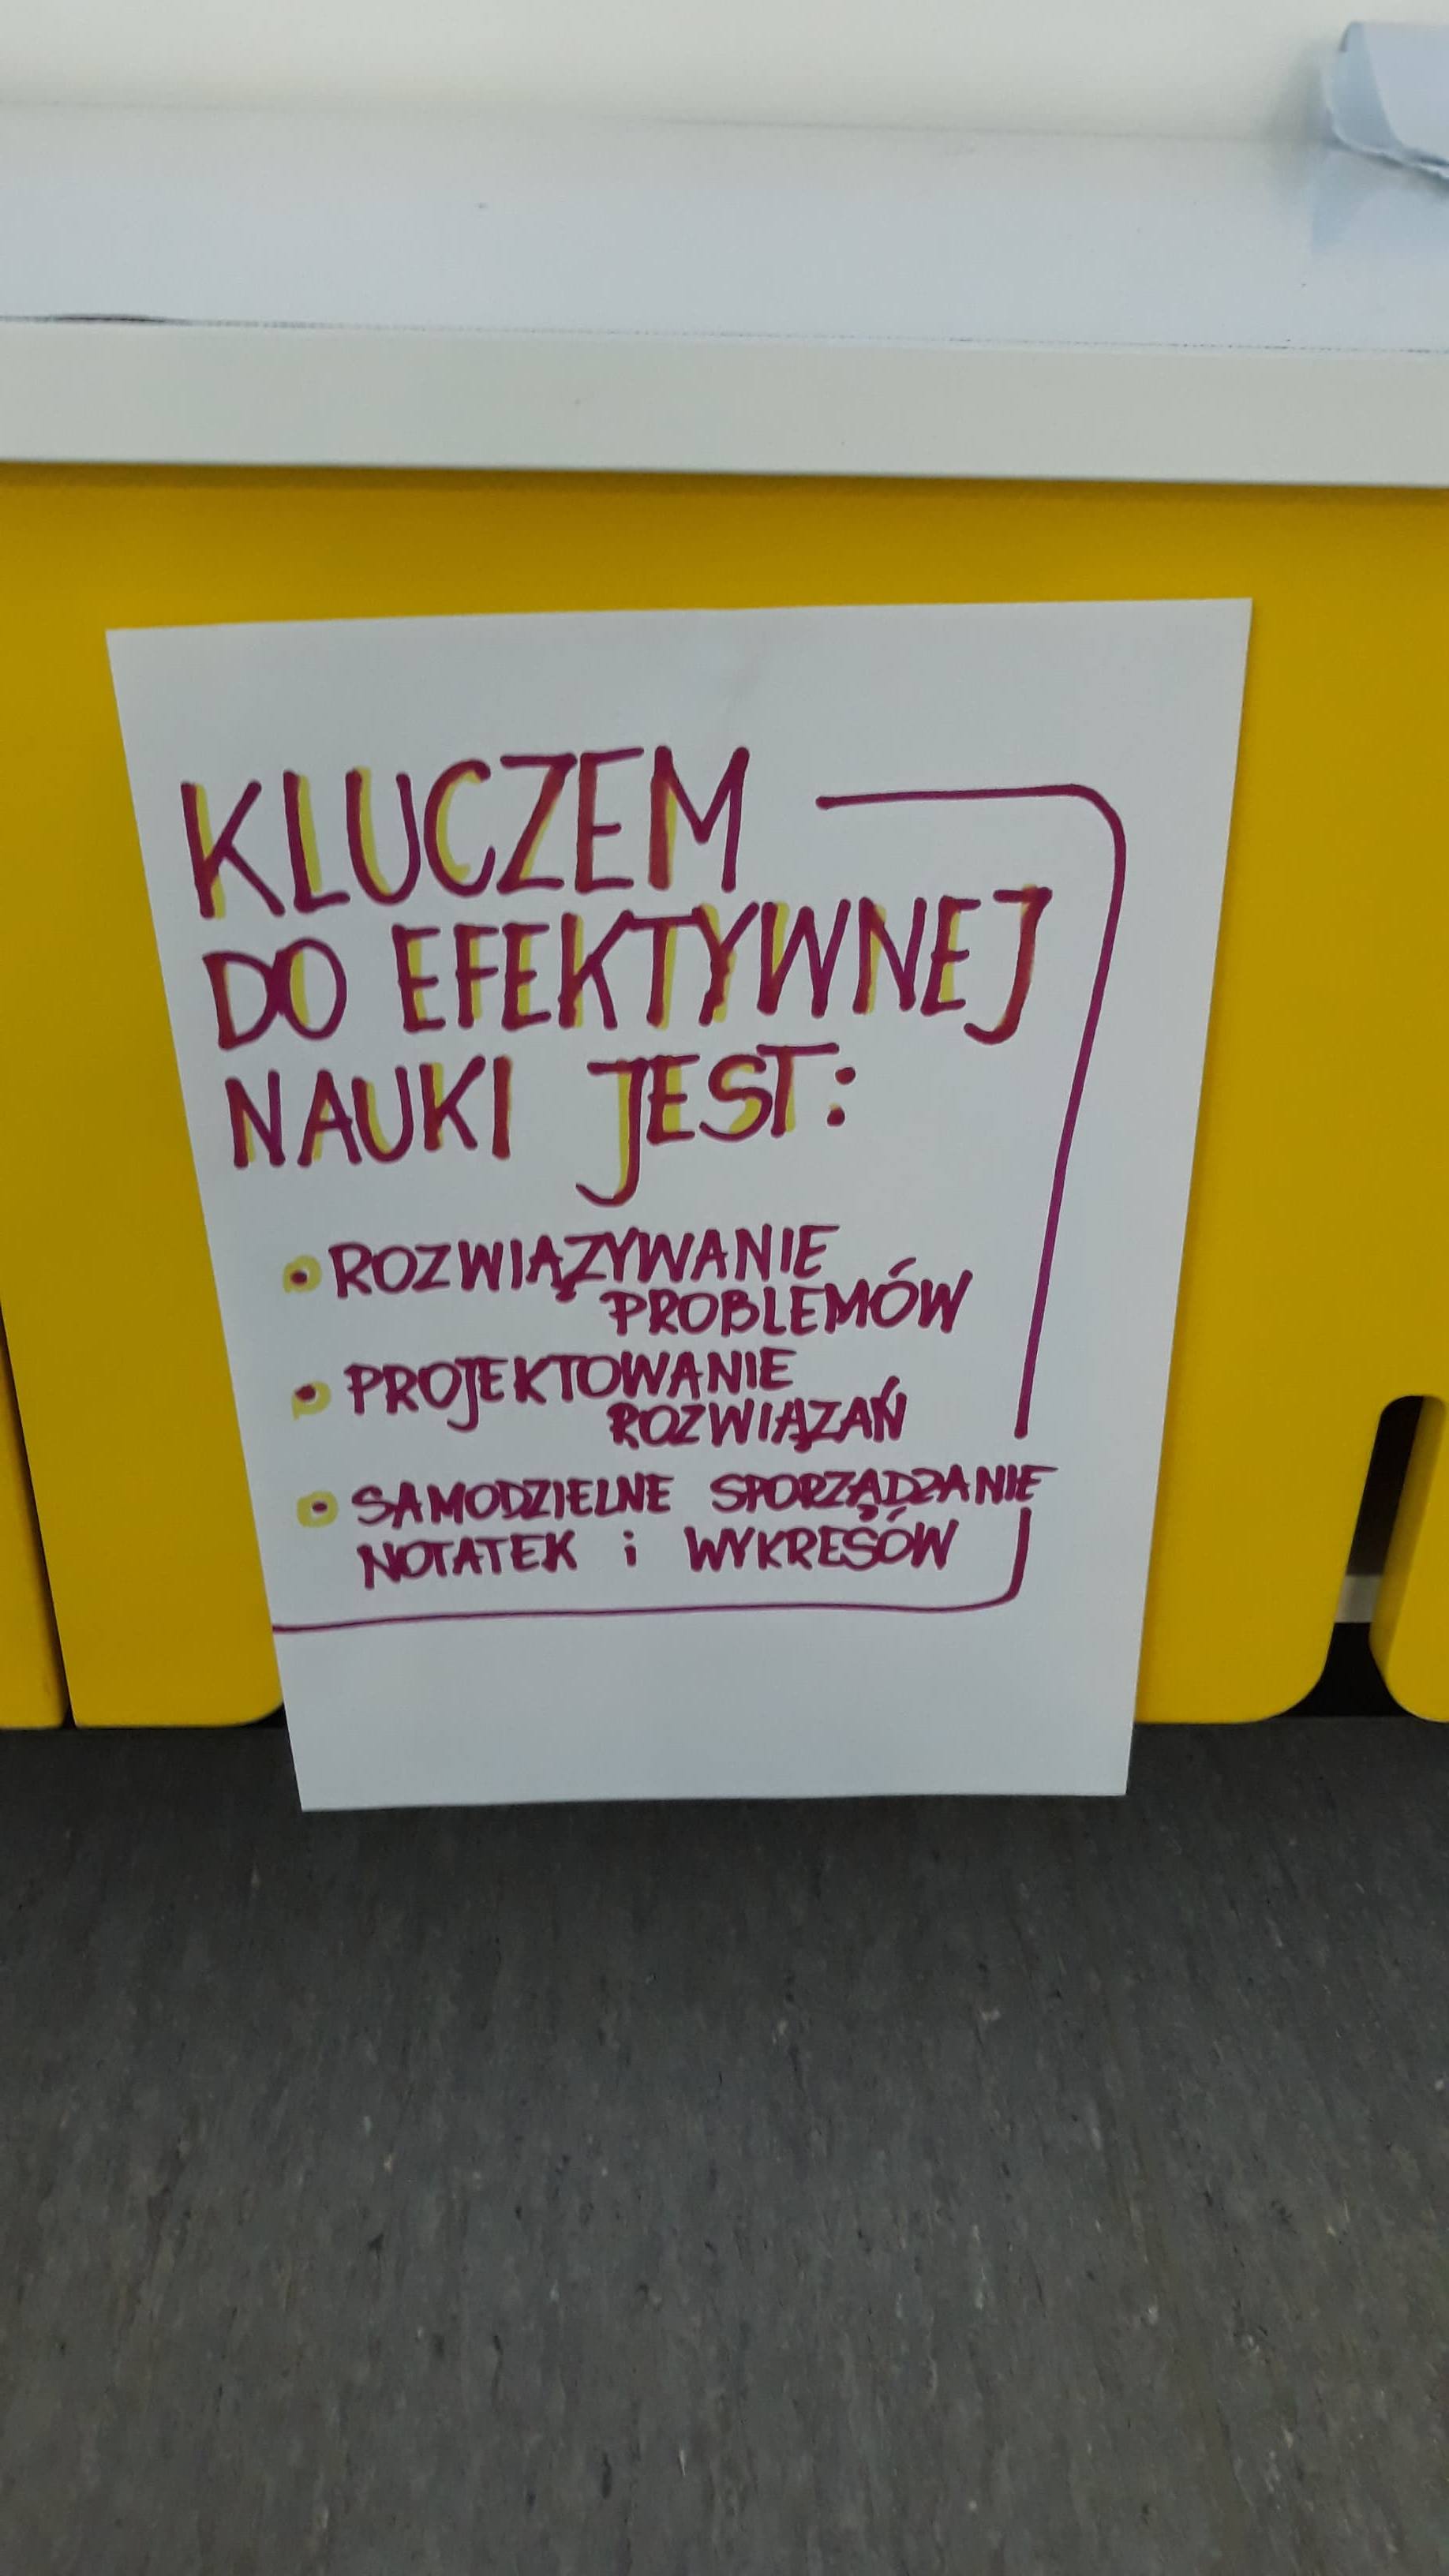 KLUCZEM
DO EFEKTYWNEJ
NAUKI JEST:
• ROZWIĄZYWANIE
PROBLEMÓW
• PROJEKTOWANIE
ROZWIĄZAŃ
• SAMODZIELNE SPORZĄDZANIE
NOTATEK i WYKREŚÓW